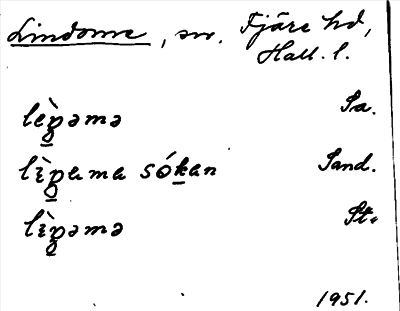 Lindome, sn. Fjäre hd,
Hall. l.
lèp̲əmə Sa.
lìp̲ama sók̲an Sand.
lìp̲əmə St.
1951.